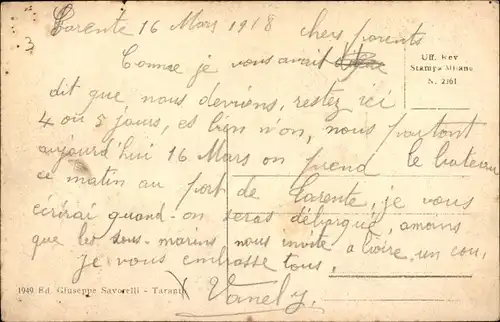 Tarente 16 Mars 1918 chers parents
Comme je vous avait
Uff. Rev
Stampa Milano
N. 2161
dit que nous devriens, restez ici
4 où 5 jours, es bien n'on, nous partont
aujourd'hui 16 Mars on prend le bateau
ce matin au port de Tarente, je vous
écrirai quand-on seras débarqué, amoins
que les sous-marins nous invite a boire un cou,
je vous embrasse tous,
Vanely.
1949 Ed. Giuseppe Savorelli - Taranto